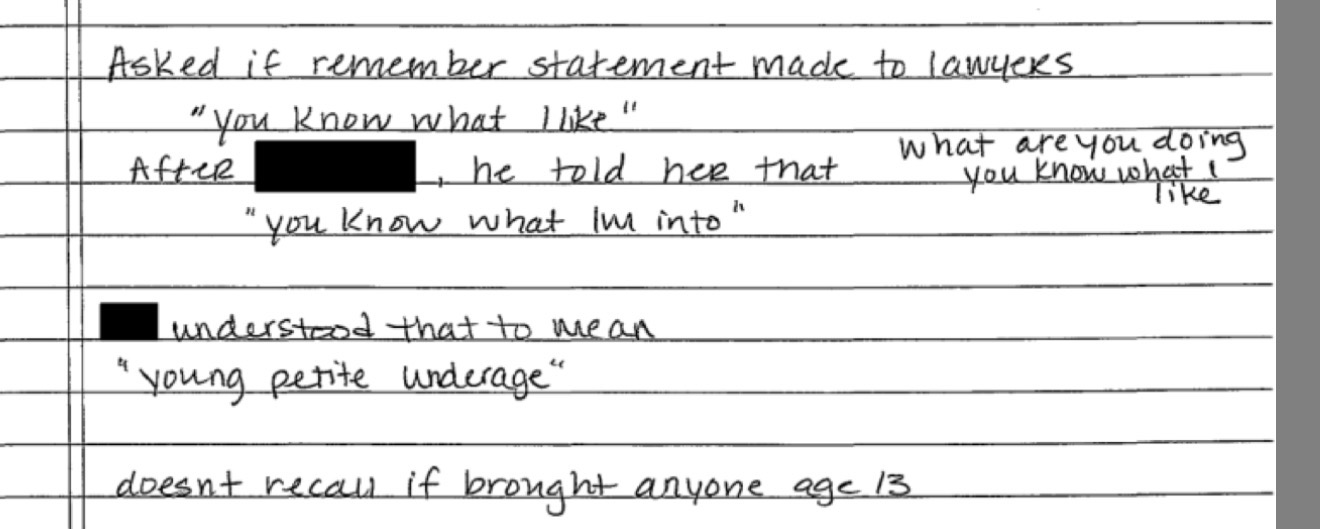 Asked if remember statement made to lawyers
"you know what I like"
After , he told her that
what are you doing
you know what I
like
"you know what Im into"
understood that to mean
"young petite underage"
doesnt recall if brought anyone age 13